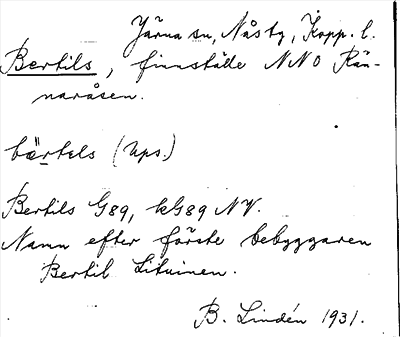 Järna sn, Nås tg, Kopp. l.
Bertils, finnställe NNO Rän-
naråsen.
bærtels (Ups.)
Bertils G89, kG89 NV.
Namn efter förste bebyggaren
Bertil Lituinen.
B. Lindén 1931.